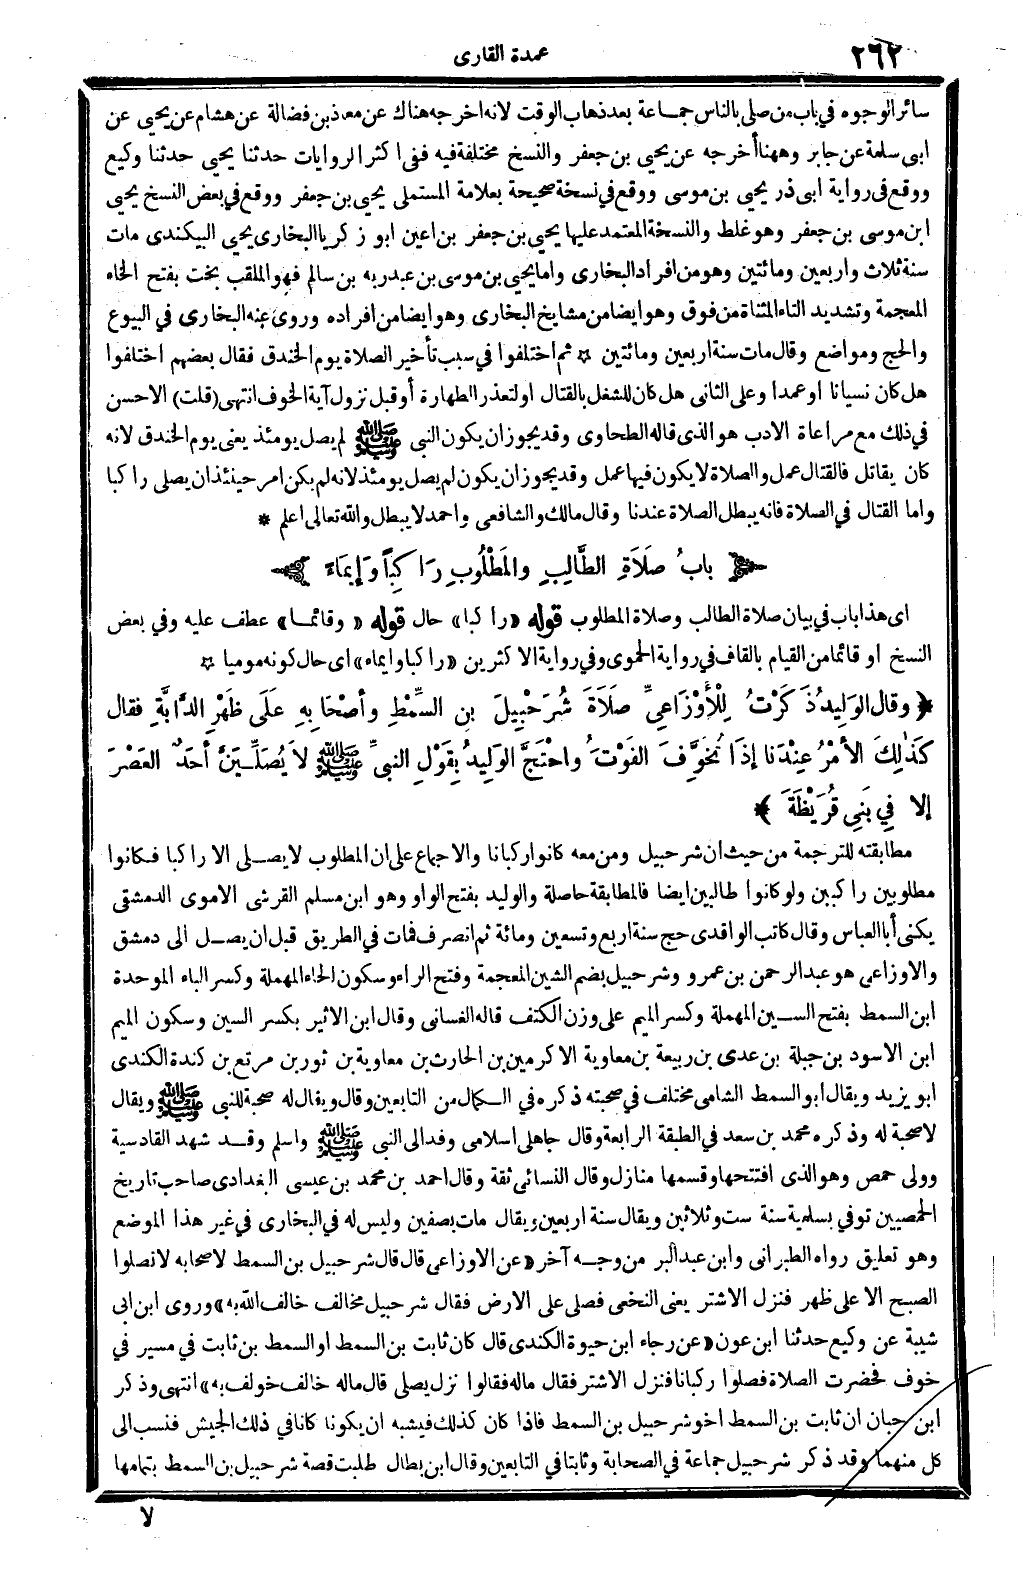 ٢٦٢
عمدة القارى
سائر الوجوه في باب من صلى بالناس جماعة بعد ذهاب الوقت لانه اخرجه هناك عن معاذ بن فضالة عن هشام عن يحيى عن
ابى سلمة عن جابر وههنا أخرجه عن يحيى بن جعفر والنسخ مختلفة فيه ففى اكثر الروايات حدثنا يحيى حدثنا وكيع
ووقع فى رواية ابى ذر يحيى بن موسى ووقع في نسخة صحيحة بعلامة المستملى يحيى بن جعفر ووقع في بعض النسخ يحيى
ابن موسى بن جعفر وهو غلط والنسخة المعتمد عليها يحيى بن جعفر بن اعين ابو زكريا البخارى يحيى البيكندى مات
سنة ثلاث واربعين ومائتين وهو من افراد البخارى واما يحيى بن موسى بن عبدربه بن سالم فهو الملقب بخت بفتح الخاء
المعجمة وتشديد التاء المثناة من فوق وهو ايضا من مشايخ البخارى وهو ايضا من افراده وروى عنه البخارى في البيوع
والحج ومواضع وقال مات سنة اربعين ومائتين ☆ ثم اختلفوا في سبب تأخير الصلاة يوم الخندق فقال بعضهم اختلفوا
هل كان نسيانا او عمدا وعلى الثانى هل كان للشغل بالقتال او لتعذر الطهارة أو قبل نزول آية الخوف انتهى (قلت) الاحسن
في ذلك مع مراعاة الادب هو الذى قاله الطحاوى وقد يجوز ان يكون النبي ﷺ لم يصل يومئذ يعنى يوم الخندق لانه
كان يقاتل فالقتال عمل والصلاة لا يكون فيها عمل وقد يجوز ان يكون لم يصل يومئذ لانه لم يكن امر حينئذ ان يصلى راكبا
واما القتال في الصلاة فانه يبطل الصلاة عندنا وقال مالك والشافعى واحمد لا يبطل والله تعالى اعلم *
بابُ صَلَاةِ الطَّالِبِ والمَطْلُوبِ رَاكِبًا وَإيمَاءً
اى هذا باب في بيان صلاة الطالب وصلاة المطلوب قوله «راكبا» حال قوله «وقائما» عطف عليه وفي بعض
النسخ او قائما من القيام بالقاف في رواية الحموى وفي رواية الاكثرين «راكبا وايماء» اى حال كونه موميا ☆
﴿ وقال الوَلِيدُ ذَكَرْتُ لِلْأَوْزَاعِيِّ صَلَاةَ شُرَحْبِيلَ بنِ السَّمْطِ وأصْحَابِهِ عَلَى ظَهْرِ الدَّابَّةِ فقال
كَذٰلِكَ الأمْرُ عِنْدَنا إذَا تُخُوِّفَ الفَوْتُ واحْتَجَّ الوَلِيدُ بِقَوْلِ النبيِّ ﷺ لا يُصَلِّيَنَّ أحَدٌ العَصْرَ
إلا في بَنِي قُرَيْظَةَ ﴾
مطابقته للترجمة من حيث ان شرحبيل ومن معه كانوا ركبانا والاجماع على ان المطلوب لا يصلى الا راكبا فكانوا
مطلوبين راكبين ولو كانوا طالبين ايضا فالمطابقة حاصلة والوليد بفتح الواو وهو ابن مسلم القرشى الاموى الدمشقى
يكنى أبا العباس وقال كاتب الواقدى حج سنة اربع وتسعين ومائة ثم انصرف فمات في الطريق قبل ان يصل الى دمشق
والاوزاعى هو عبدالرحمن بن عمرو وشرحبيل بضم الشين المعجمة وفتح الراء وسكون الحاء المهملة وكسر الباء الموحدة
ابن السمط بفتح السين المهملة وكسر الميم على وزن الكتف قاله الغسانى وقال ابن الاثير بكسر السين وسكون الميم
ابن الاسود بن جبلة بن عدى بن ربيعة بن معاوية الاكرمين بن الحارث بن معاوية بن ثور بن مرتع بن كندة الكندى
ابو يزيد ويقال ابو السمط الشامى مختلف في صحبته ذكره في الكمال من التابعين وقال ويقال له صحبة للنبى ﷺ ويقال
لا صحبة له وذكره محمد بن سعد في الطبقة الرابعة وقال جاهلى اسلامى وفد الى النبى ﷺ واسلم وقد شهد القادسية
وولى حمص وهو الذى افتتحها وقسمها منازل وقال النسائى ثقة وقال احمد بن محمد بن عيسى البغدادى صاحب تاريخ
الحمصيين توفي بسلمية سنة ست وثلاثين ويقال سنة اربعين ويقال مات بصفين وليس له في البخارى في غير هذا الموضع
وهو تعليق رواه الطبرانى وابن عبدالبر من وجه آخر «عن الاوزاعى قال قال شرحبيل بن السمط لاصحابه لا تصلوا
الصبح الا على ظهر فنزل الاشتر يعنى النخعى فصلى على الارض فقال شرحبيل مخالف خالف الله به» وروى ابن ابى
شيبة عن وكيع حدثنا ابن عون «عن رجاء ابن حيوة الكندى قال كان ثابت بن السمط او السمط بن ثابت في مسير في
خوف فحضرت الصلاة فصلوا ركبانا فنزل الاشتر فقال ماله فقالوا نزل يصلى قال ماله خالف خولف به» انتهى وذكر
ابن حبان ان ثابت بن السمط اخو شرحبيل بن السمط فاذا كان كذلك فيشبه ان يكونا كانا في ذلك الجيش فنسب الى
كل منهما وقد ذكر شرحبيل جماعة في الصحابة وثابتا في التابعين وقال ابن بطال طلبت قصة شرحبيل بن السمط بتمامها
لا